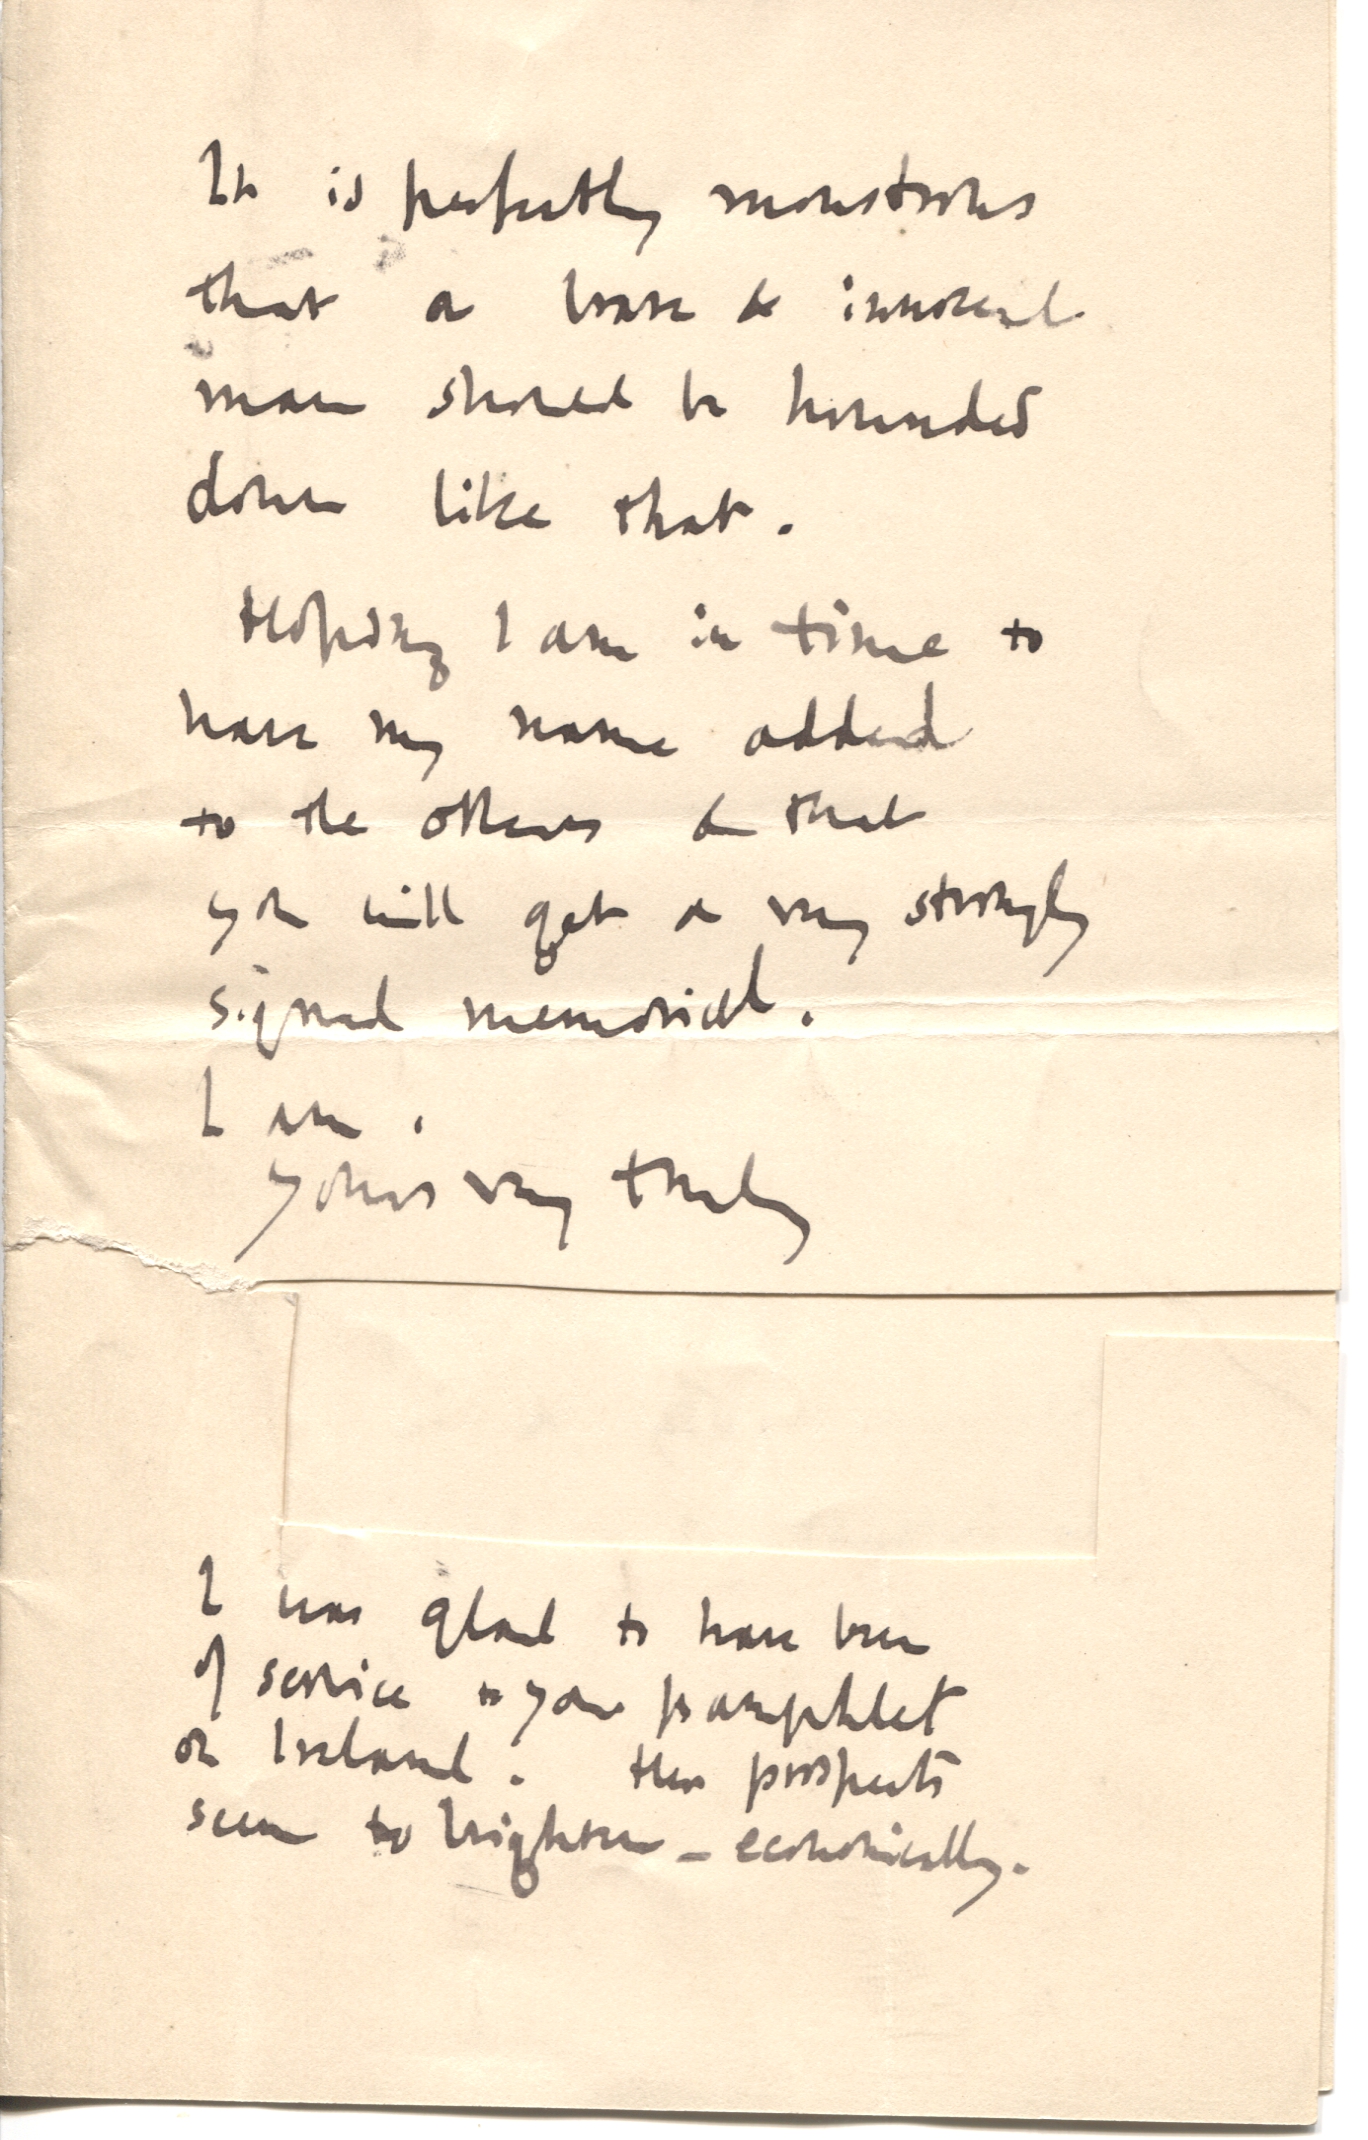 It is perfectly monstrous
that a brave & innocent
man should be hounded
down like that.
Hoping I am in time to
have my name added
to the others & that
you will get a very strongly
signed memorial.
I am.
yours very truly
I was glad to have been
of service to your pamphlet
on Ireland. Her prospects
seem to brighten – economically.